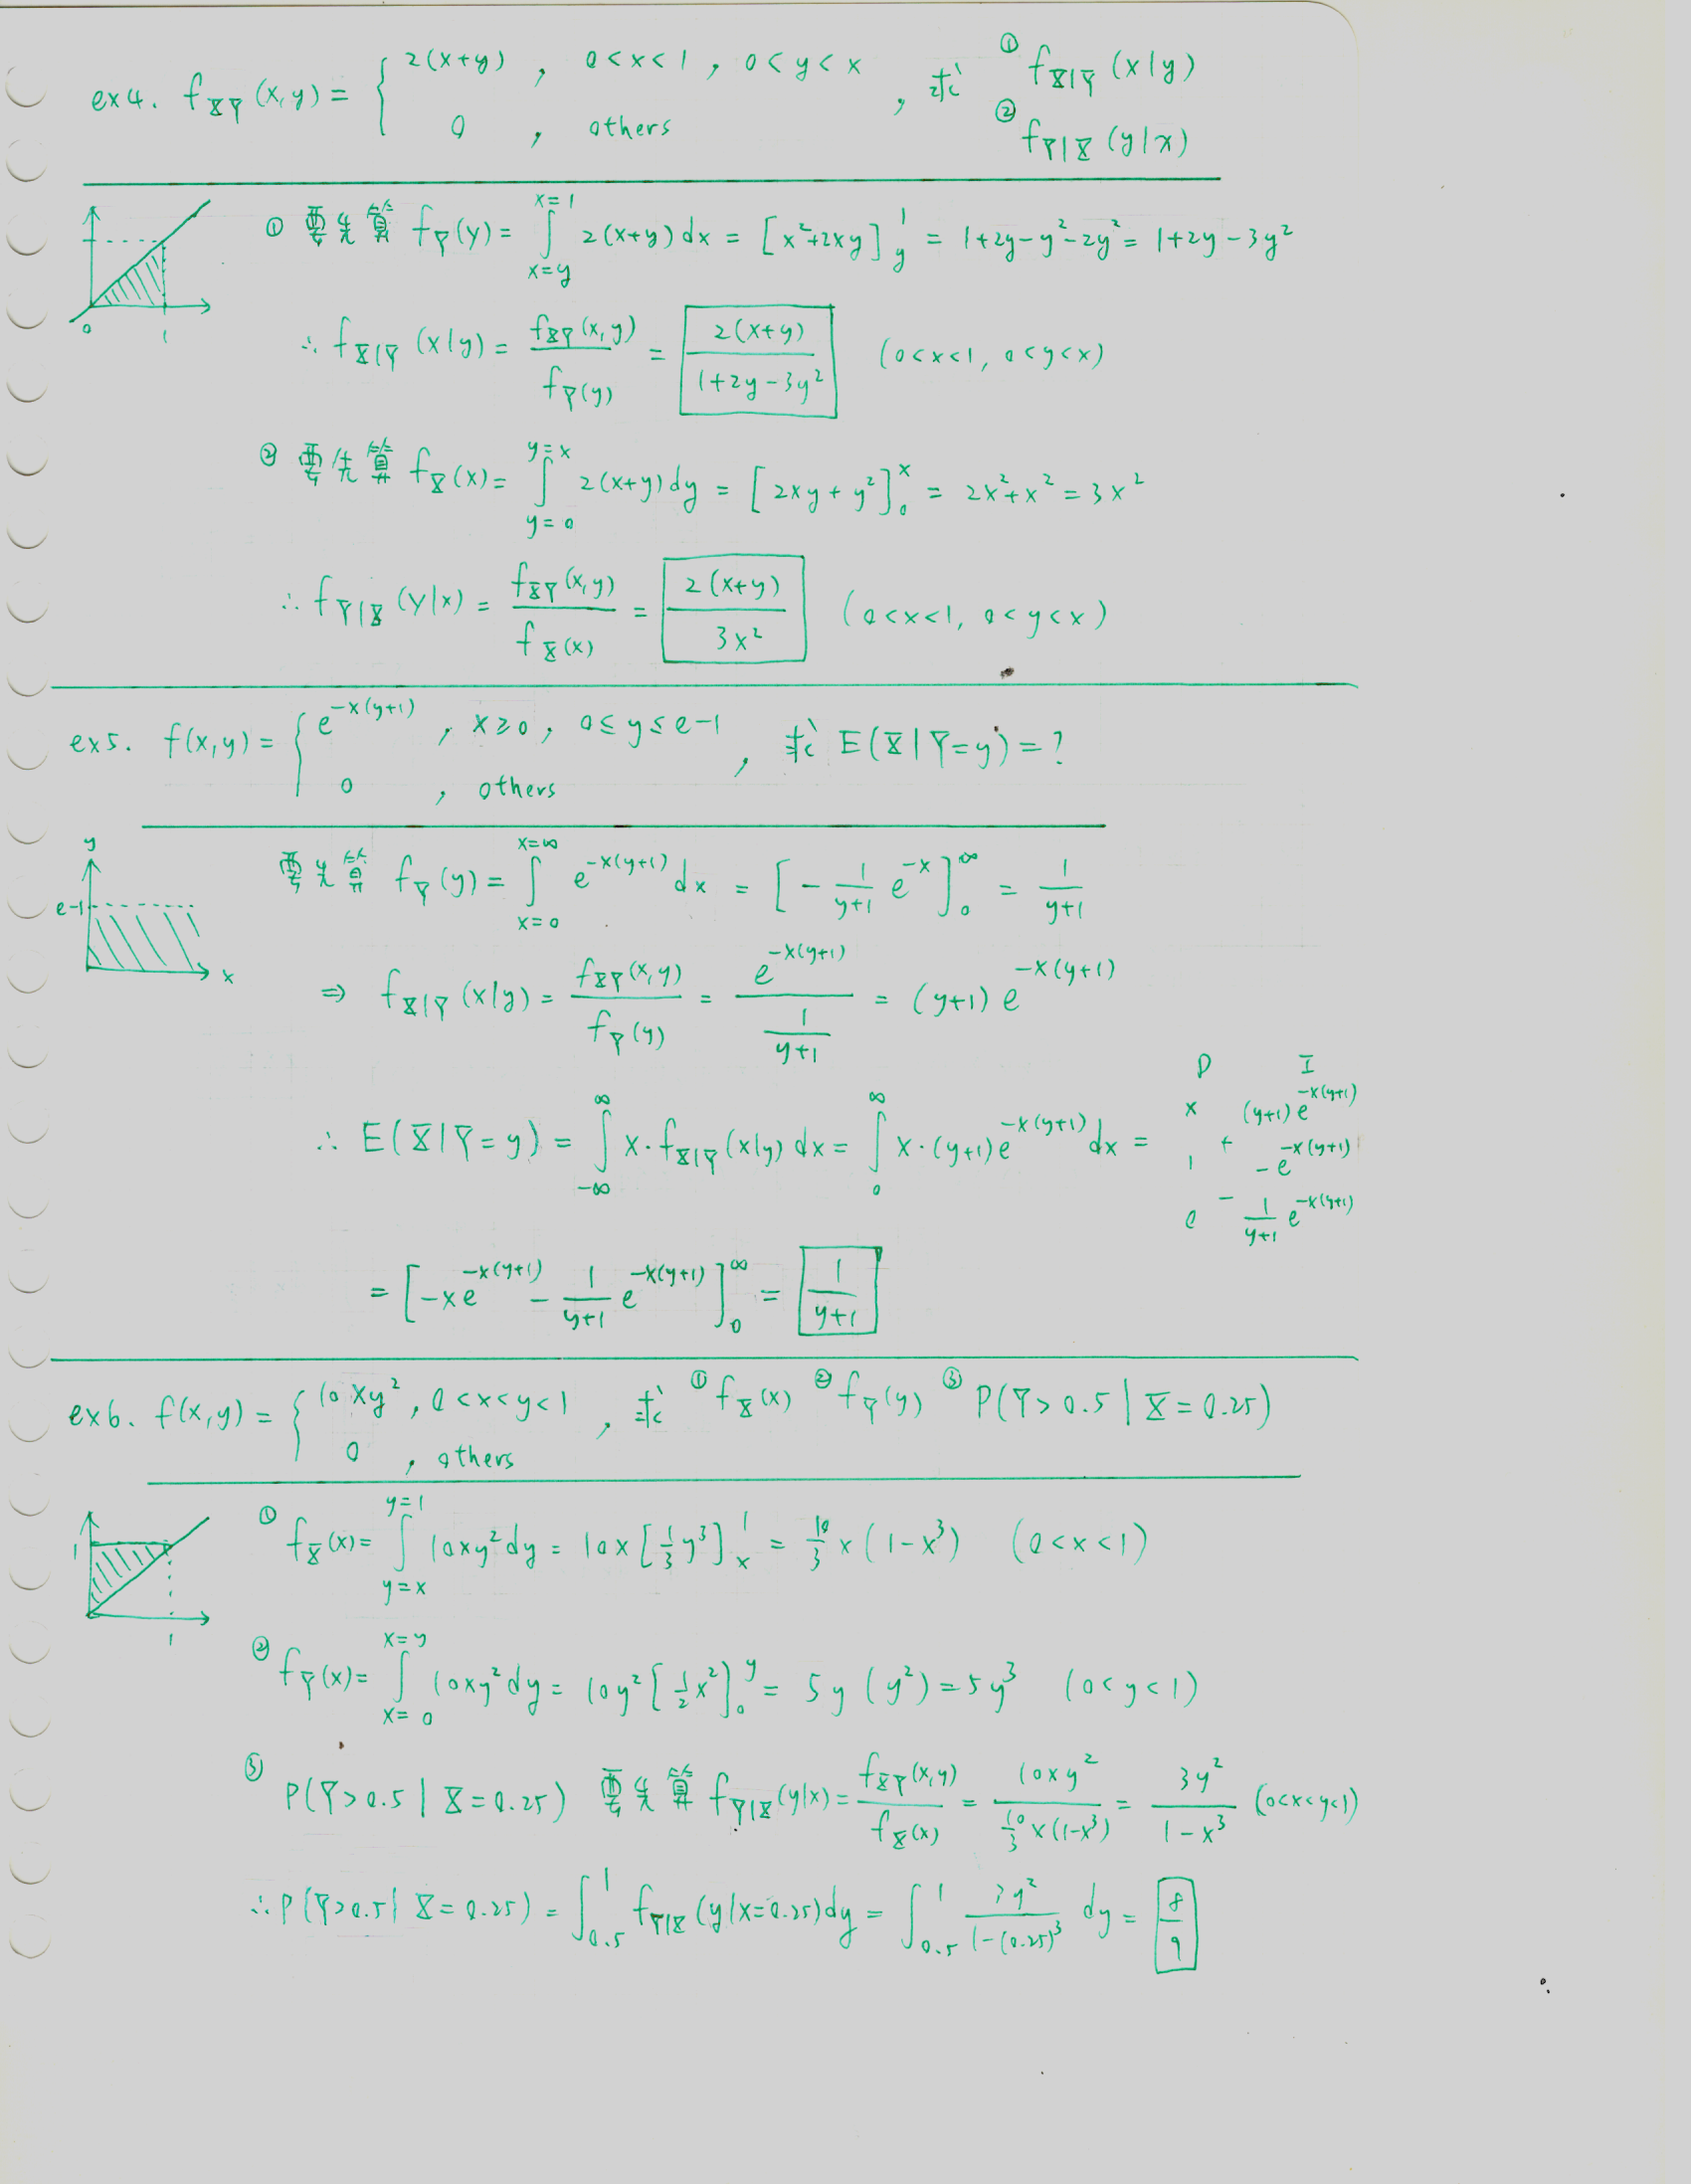 ex4. f_XY (x,y) = { 2(x+y) , 0<x<1 , 0<y<x , 求 ① f_X|Y (x|y)
0 , others ② f_Y|X (y|x)
① 要先算 f_Y(y) = ∫_{x=y}^{x=1} 2(x+y)dx = [x²+2xy]_y^1 = 1+2y-y²-2y² = 1+2y-3y²
0 1
∴ f_X|Y (x|y) = f_XY(x,y) / f_Y(y) = 2(x+y) / (1+2y-3y²) (0<x<1, 0<y<x)
② 要先算 f_X(x) = ∫_{y=0}^{y=x} 2(x+y)dy = [2xy+y²]_0^x = 2x²+x² = 3x²
∴ f_Y|X (y|x) = f_XY(x,y) / f_X(x) = 2(x+y) / 3x² (0<x<1, 0<y<x)
ex5. f(x,y) = { e^{-x(y+1)} , x≥0 , 0≤y≤e-1 , 求 E(X|Y=y)=?
0 , others
y e-1 x
要先算 f_Y(y) = ∫_{x=0}^{x=∞} e^{-x(y+1)} dx = [-1/(y+1) e^{-x}]_0^∞ = 1/(y+1)
⇒ f_X|Y (x|y) = f_XY(x,y) / f_Y(y) = e^{-x(y+1)} / (1/(y+1)) = (y+1) e^{-x(y+1)}
∴ E(X|Y=y) = ∫_{-∞}^{∞} x·f_X|Y(x|y)dx = ∫_0^∞ x·(y+1)e^{-x(y+1)}dx =
D I
x (y+1)e^{-x(y+1)}
1 + -e^{-x(y+1)}
0 - 1/(y+1) e^{-x(y+1)}
= [-xe^{-x(y+1)} - 1/(y+1) e^{-x(y+1)}]_0^∞ = 1/(y+1)
ex6. f(x,y) = { 10xy² , 0<x<y<1 , 求 ① f_X(x) ② f_Y(y) ③ P(Y>0.5|X=0.25)
0 , others
1 1
① f_X(x) = ∫_{y=x}^{y=1} 10xy²dy = 10x[1/3 y³]_x^1 = 10/3 x(1-x³) (0<x<1)
② f_Y(x) = ∫_{x=0}^{x=y} 10xy²dy = 10y²[1/2 x²]_0^y = 5y(y²) = 5y³ (0<y<1)
③ P(Y>0.5|X=0.25) 要先算 f_Y|X(y|x) = f_XY(x,y) / f_X(x) = 10xy² / (10/3 x(1-x³)) = 3y² / (1-x³) (0<x<y<1)
∴ P(Y>0.5|X=0.25) = ∫_{0.5}^1 f_Y|X(y|x=0.25)dy = ∫_{0.5}^1 3y² / (1-(0.25)³) dy = 8/9